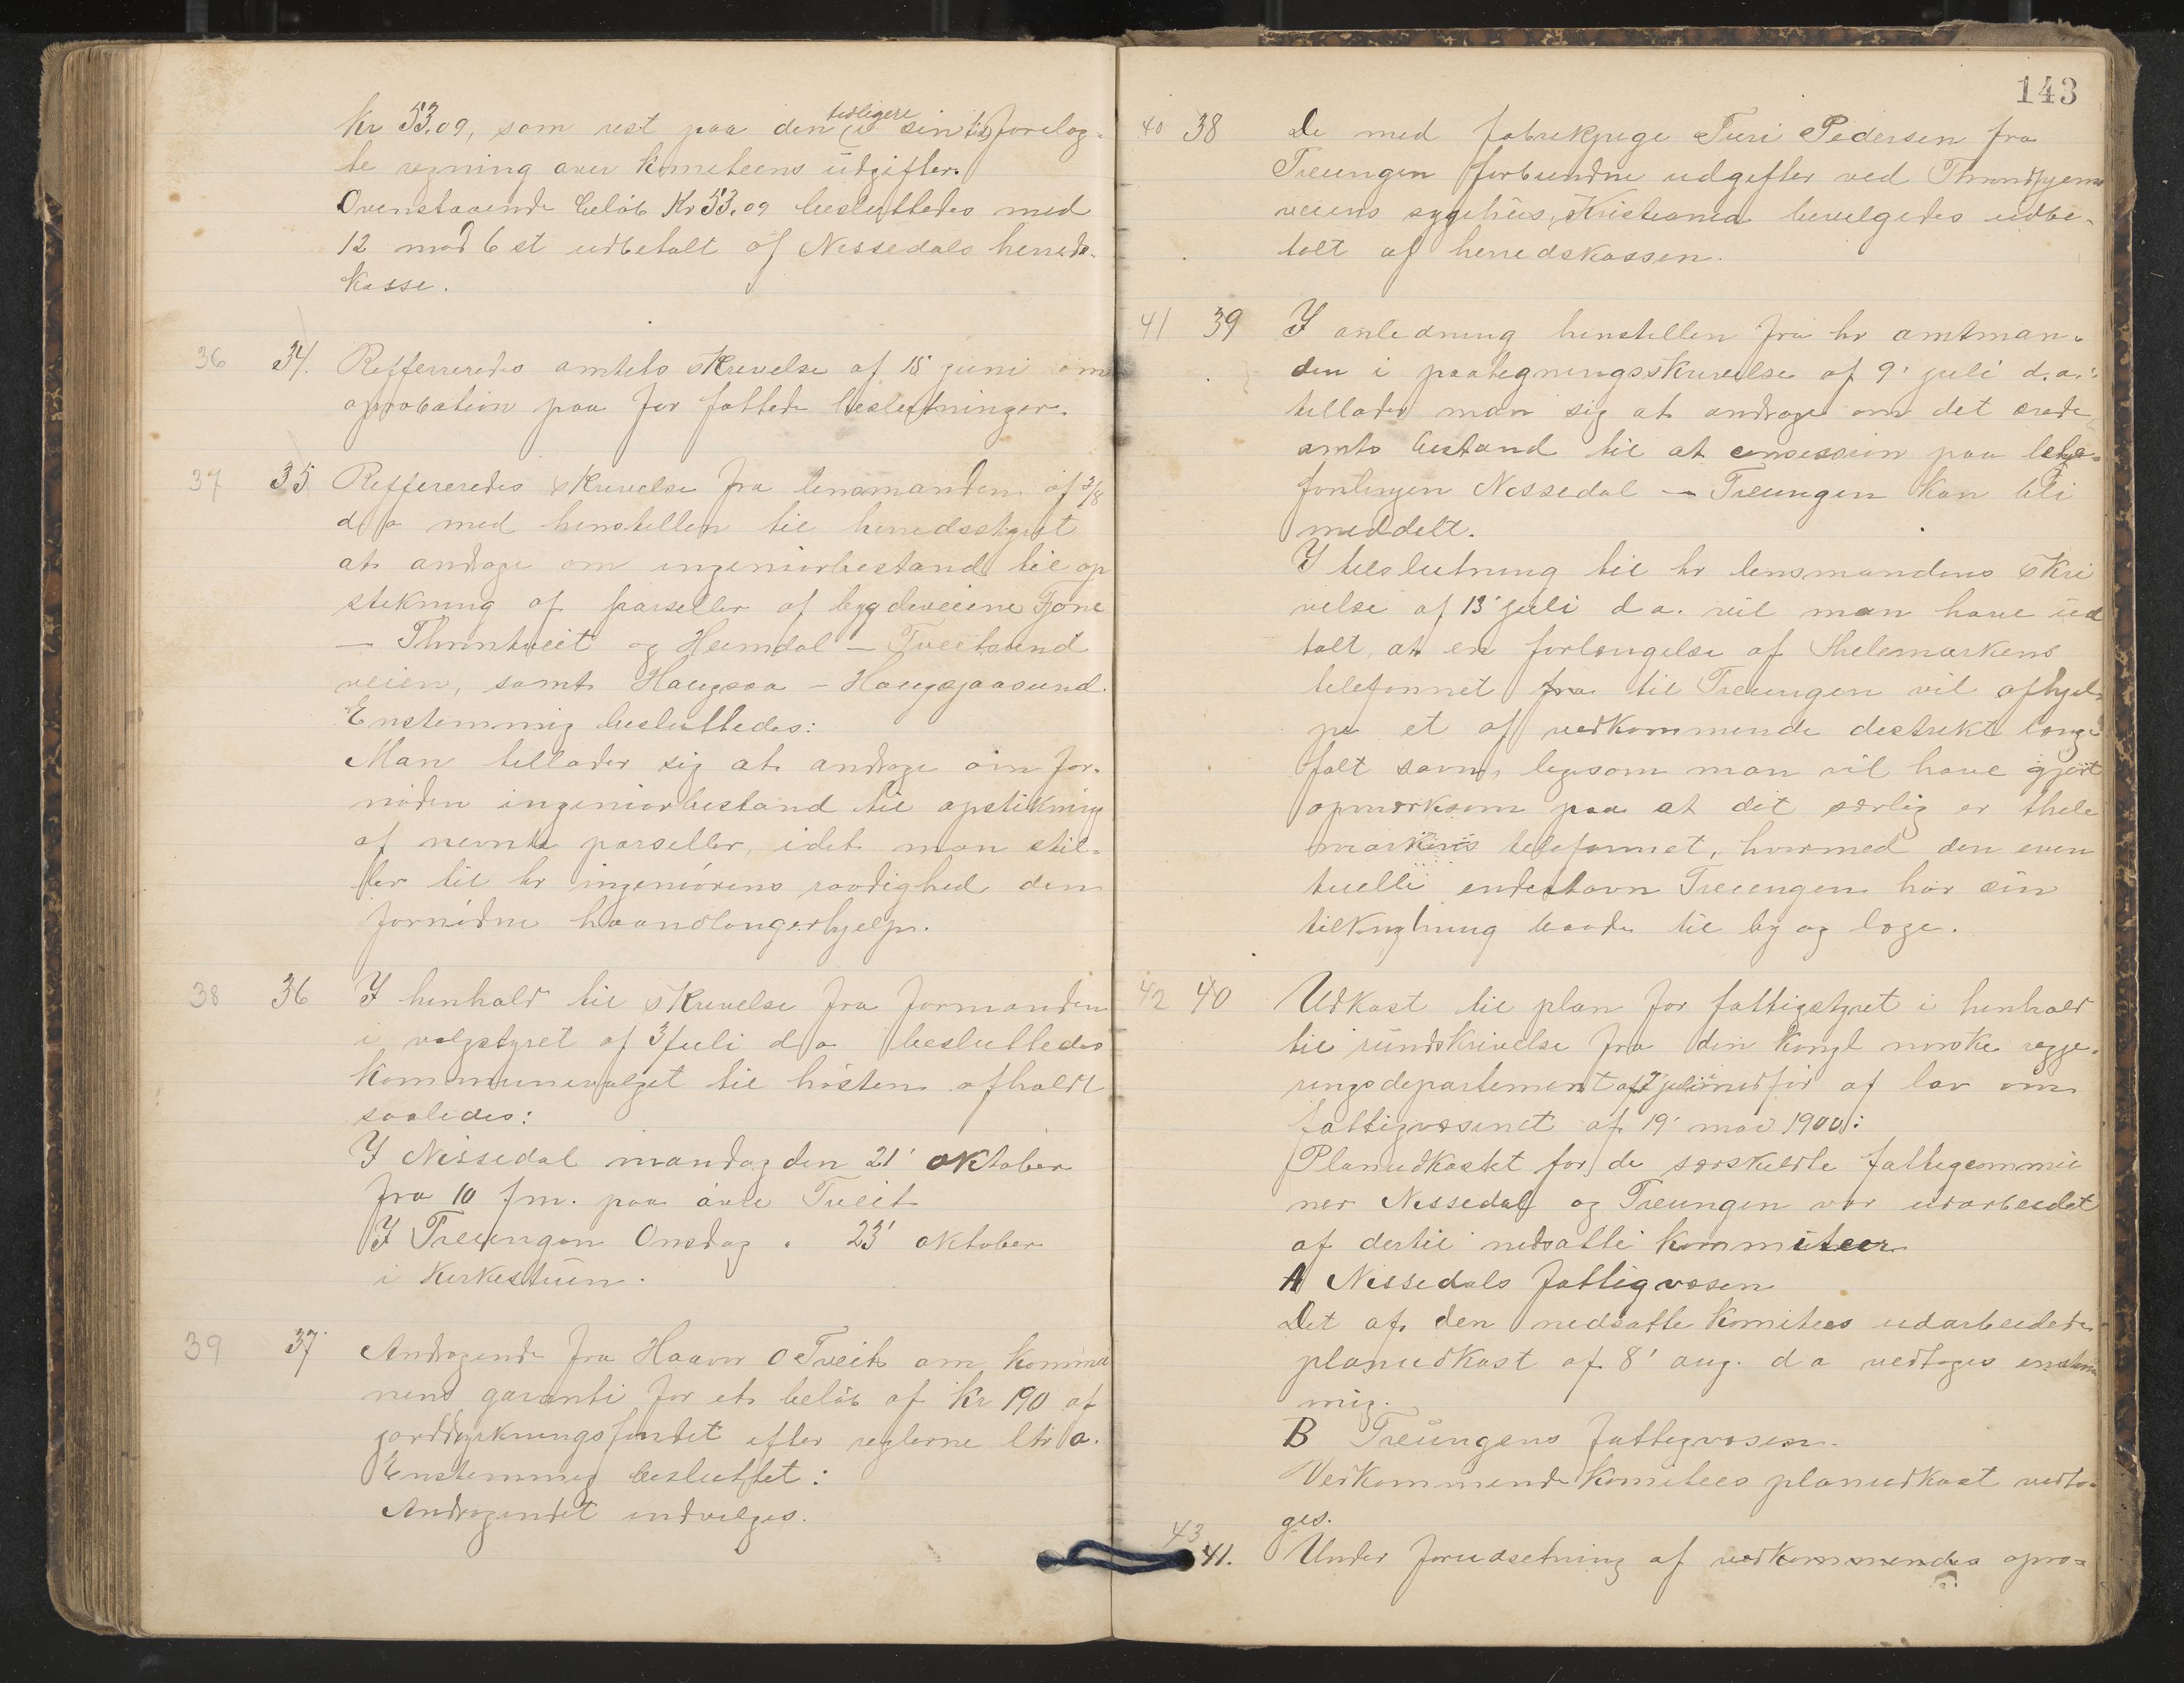 kr 53.09, som rest paa den tidligere sin tid forelag-
te regning over komiteens udgifter.
Ovenstaaende beløb Kr 53.09 besluttedes med
12 mod 6 st udbetalt af Nissedals herreds-
kasse.
36 34. Reffereredes amtets skrivelse af 15 juni om
aprobation paa for fattede beslutninger.
37 35 Reffereredes skrivelse fra lensmanden af 3/8
d a med henstillen til herredsstyret
at andrage om ingeniørbestand til op
stikning af parseller af bygdeveiene Fjone
— Throntveit og Heimdal — Tveitsund
veien, samt Haugsaa — Haugsjaasund.
Enstemmig besluttedes:
Man tillader sig at andrage om for-
nøden ingeniørbestand til opstikning
af nevnte parseller, idet man stil-
ler til hr ingeniørens raadighed den
fornødne haandlangerhjelp.
38 36 I henhold til skrivelse fra formanden
i valgstyret af 3 juli d a besluttedes
kommunevalget til høsten afholdt
saaledes:
I Nissedal mandag den 21' oktober
fra 10 fm. paa øvre Tveit
I Treungen Onsdag " 23' oktober
i Kirkestuen.
39 37 Andragende fra Haavor O Tveit om kommu
nens garanti for et beløb af Kr 190 af
jorddyrkningsfondet efter reglerne ltr a.
Enstemmig besluttet:
Andragendet indvilges.
143
40 38 De med fabrikpige Turi Pedersen fra
Treungen forbundne udgifter ved Throndhjems
veiens sygehus, Kristiania bevilgedes udbe-
talt af herredskassen.
41 39 I anledning henstillen fra hr amtman-
den i paategningsskrivelse af 9' juli d. a.
tillader man sig at andrage om det ærede
amts bistand til at concession paa
Nissedal — Treungen kan bli
meddelt.
I tilslutning til hr lensmandens skri
velse af 13' juli d a. vil man have ud
talt, at en forlængelse af Thelemarkens
telefonnet fra til Treungen vil afhjel-
pe et af vedkommende distrikt længe
følt savn, ligesom man vil have gjort
opmerksom paa at det særlig er Thele
markens telefonnet, hvormed den even
tuelle endestavn Treungen har sin
tilknytning baade til by og læge.
42 40 Udkast til plan for fattigstyret i henhold
til rundskrivelse fra den kongl norske regje-
ringsdepartement af juli af lov om
fattigvæsenet af 19' mai 1900:
Planudkastet for de særskildte fattigcommu
ner Nissedal og Treungen var udarbeidet
af dertil nedsatte kommiteer
A Nissedals fattigvæsen
Det af den nedsatte komitees udarbeidede
planudkast af 8' aug. d a vedtoges enstem
mig.
B Treungens fattigvæsen.
Vedkommende komitees planudkast vedto-
ges.
43 41. Under forudsetning af vedkommendes apro-